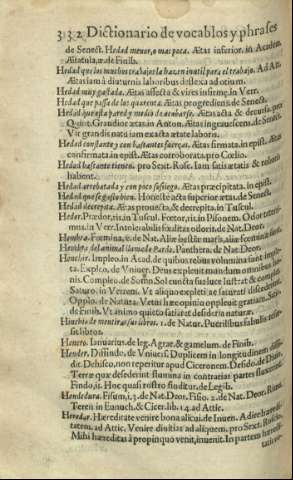 332 Dictionario de vocablos y phrases
de Senect. Hedad menor, o mas poca. Ætas inferior. in Academ.
Ætatula, æ. de Finib.
Hedad que los muchos trabajos la hazen inutil para el trabajo. Ad Att.
Ætas iam à diuturnis laboribus deflexa ad otium.
Hedad muy gastada. Ætas affecta & vires infirmę. in Verr.
Hedad que passa de los quarenta. Ætas progrediens de Senect.
Ætas acta & decurs.
Quint. Grandior ætas. in Anton. Ætas ingrauescens. de Senect.
Vir grandis natu iam exacta ætate laboris.
Hedad constante y con bastantes fuerças. Ætas firmata. in epist. Ætas
confirmata in epist. Ætas corroborata. pro Cœlio.
Hedad bastante tienen. pro Sext. Rosc. Iam satis ætatis & roboris
habent.
Hedad arrebatada y con poco sossiego. Ætas præcipitata. in epist.
Honestè acta superior ætas. de Senect.
Hedad decrepita. Ætas prouecta, & decrepita. in Tuscul.
Heder. Putor, ris. in Tuscul. Fœtor, ris. in Pisonem. Odor teterri-
mus. in Verr. Intolerabilis fœditas odoris. de Nat. Deor.
Hembra. Fœmina, æ. de Nat. Aliæ bestiæ mares, aliæ fœminæ sunt.
Hembra del animal llamado Pardo. Panthera. de Nat. Deor.
Henchir. Impleo. in Acad. de quibus rebus volumina sunt imple-
ta. Expleo. de Vniuer. Deus expleuit mundum omnibus bo-
nis. Compleo. de Somn. Sol cuncta sua luce lustrat & complet.
Saturo. in Verrem. Vt aliquo expleti ac saturati discederent.
Opplo. de Natura. Vetus hæc opinio oppleuit græciam. Satio.
de Finib. Vt animo quieto satiaret desideria naturæ.
Hinchio de mentiras sus libros. 1. de Nat. Puerilibus fabulis refer-
sit libros.
Henero. Ianuarius. de leg. Agrar. & gamelum. de Finib.
Hender. Diffindo. de Vniuers. Duplicem in longitudinem diffi-
dit. Dehisco, non reperitur apud Ciceronem. Desido. de Diuin.
Terræ quæ desederint
Findo, is. Hoc quasi rostro finditur. de Legib.
Hendedura. Fissum, i, 3. de Nat. Deor. Fissio. 2. de Nat. Deor. Rima.
Teren in Eunuch. & Cicer. lib. 14. ad Attic.
Heredar. Hæreditate venire bona alicui. de Inuen. Adire hæredi-
tatem. ad Attic. Venire diuitias ad aliquem. pro Sext. Roscio.
Mihi hæreditas à propinquo venit, inuenit. In partem hæredi-
tatis